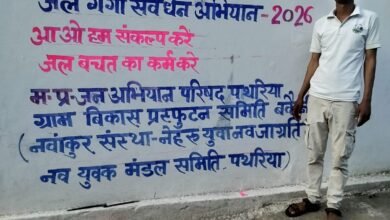 जल गंगा संवर्धन अभियान-2026
आओ हम संकल्प करें
जल बचत का कर्म करे
म.प्र.जन अभियान परिषद पथरिया
ग्राम विकास प्रस्फुटन समिति
(नवांकुर संस्था-नेहरू युवा नव जागृति
नव युवक मंडल समिति-पथरिया)